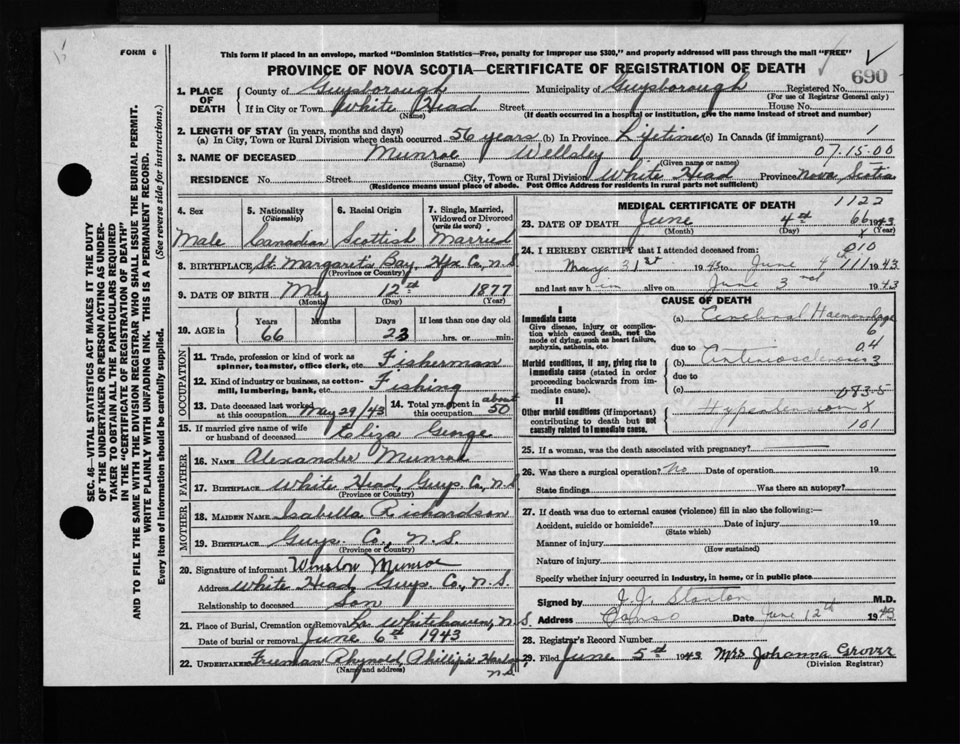 FORM 6
This form if placed in an envelope, marked "Dominion Statistics—Free, penalty for improper use $300," and properly addressed will pass through the mail "FREE"
PROVINCE OF NOVA SCOTIA—CERTIFICATE OF REGISTRATION OF DEATH
690
1. PLACE OF DEATH
County of Guysborough Municipality of Guysborough Registered No.
(For use of Registrar General only)
If in City or Town White Head Street House No.
(Name) (If death occurred in a hospital or institution, give the name instead of street and number)
2. LENGTH OF STAY (in years, months and days)
(a) In City, Town or Rural Division where death occurred 56 years (b) In Province Lifetime (c) In Canada (if immigrant) 1
3. NAME OF DECEASED Munroe Wellsley 07.15.00
(Surname) (Given name or names)
RESIDENCE No. Street City, Town or Rural Division White Head Province Nova Scotia
(Residence means usual place of abode. Post Office Address for residents in rural parts not sufficient)
4. Sex
Male
5. Nationality
(Citizenship)
Canadian
6. Racial Origin
Scottish
7. Single, Married, Widowed or Divorced
(write the word)
Married
8. BIRTHPLACE St. Margaret's Bay, Hfx Co., N.S.
(Province or Country)
9. DATE OF BIRTH May 12th 1877
(Month) (Day) (Year)
10. AGE in
Years Months Days If less than one day old
66 23 hrs. or min.
OCCUPATION
11. Trade, profession or kind of work as spinner, teamster, office clerk, etc. Fisherman
12. Kind of industry or business, as cotton-mill, lumbering, bank, etc. Fishing
13. Date deceased last worked at this occupation May 29/43
14. Total yrs. spent in this occupation about 50
15. If married give name of wife or husband of deceased Eliza George
FATHER
16. NAME Alexander Munroe
17. BIRTHPLACE White Head, Guys. Co., N.S.
(Province or Country)
MOTHER
18. MAIDEN NAME Isabella Richardson
19. BIRTHPLACE Guys. Co., N.S.
(Province or Country)
20. Signature of informant Winslow Munroe
Address White Head, Guys. Co., N.S.
Relationship to deceased Son
21. Place of Burial, Cremation or Removal Whitehaven, N.S.
Date of burial or removal June 6th 1943
22. UNDERTAKER Freeman Phillip's
(Name and address)
N.S.
MEDICAL CERTIFICATE OF DEATH 1122
23. DATE OF DEATH June 4th 66 1943
(Month) (Day) (Year)
x
24. I HEREBY CERTIFY that I attended deceased from: 010
May 31st 1943 to June 4th 111 1943
and last saw him alive on June 3 1943
CAUSE OF DEATH
Immediate cause
Give disease, injury or complication which caused death, not the mode of dying, such as heart failure, asphyxia, asthenia, etc.
(a) Cerebral Haemorrhage
due to 04
Morbid conditions, if any, giving rise to immediate cause (stated in order proceeding backwards from immediate cause).
(b) Arteriosclerosis 3
due to
(c) 083.5
II
Other morbid conditions (if important) contributing to death but not causally related to immediate cause.
Hypertension x
101
25. If a woman, was the death associated with pregnancy?
26. Was there a surgical operation? No Date of operation 19
State findings Was there an autopsy?
27. If death was due to external causes (violence) fill in also the following:—
Accident, suicide or homicide? Date of injury 19
(State which)
Manner of injury
(How sustained)
Nature of injury
Specify whether injury occurred in industry, in home, or in public place
Signed by J.J. Stanton M.D.
Address Canso Date June 12th 1943
28. Registrar's Record Number
29. Filed June 5th 1943 Mrs Johanna Grover
(Division Registrar)
SEC. 46—VITAL STATISTICS ACT MAKES IT THE DUTY
OF THE UNDERTAKER OR PERSON ACTING AS UNDER-
TAKER TO OBTAIN ALL THE PARTICULARS REQUIRED
IN THE "CERTIFICATE OF REGISTRATION OF DEATH"
AND TO FILE THE SAME WITH THE DIVISION REGISTRAR WHO SHALL ISSUE THE BURIAL PERMIT.
WRITE PLAINLY WITH UNFADING INK. THIS IS A PERMANENT RECORD.
Every item of information should be carefully supplied. (See reverse side for instructions.)